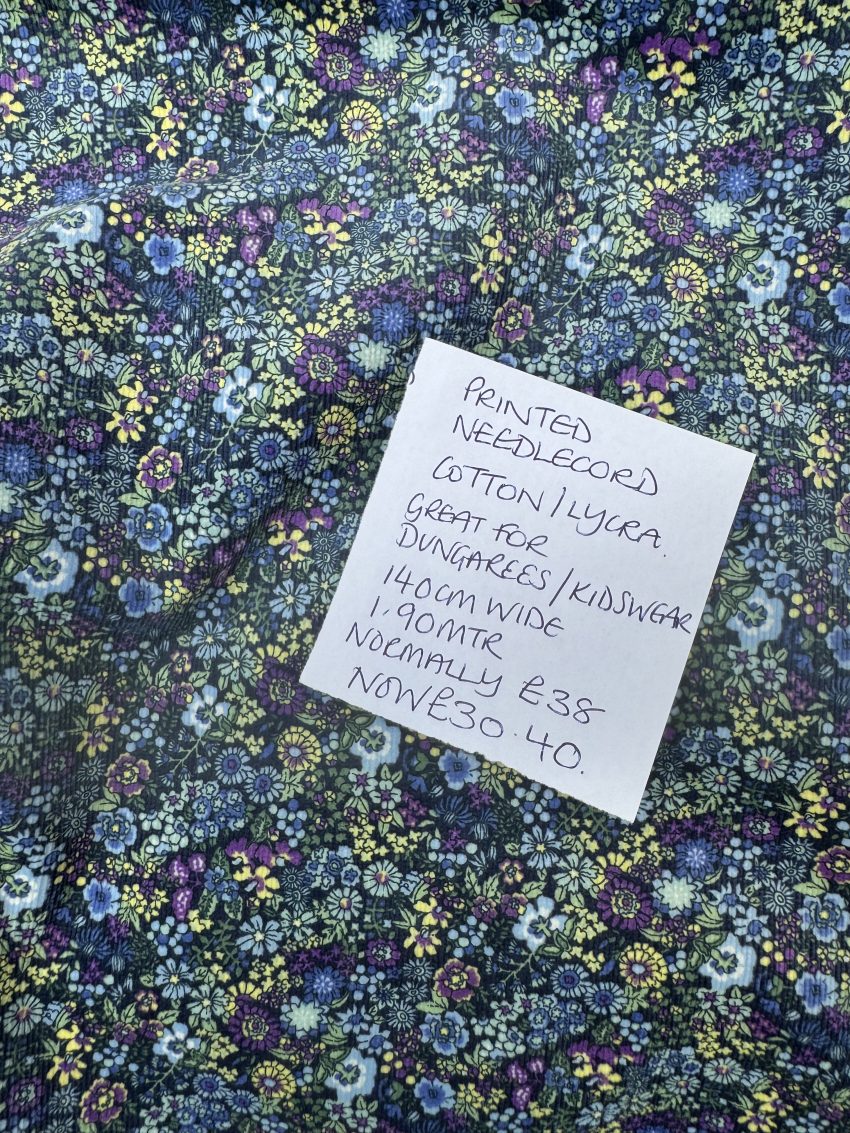 PRINTED
NEEDLECORD
COTTON/LYCRA.
GREAT FOR
DUNGAREES/KIDSWEAR
140CM WIDE
1.90MTR
NORMALLY £38
NOW £30.40.